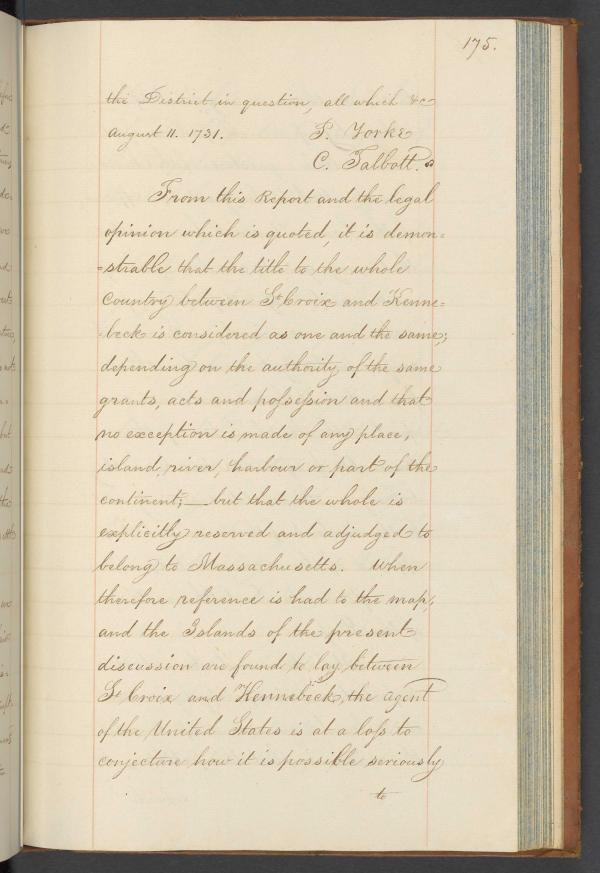 175.
the District in question, all which &c
August 11. 1731. P. Yorke
C. Talbott."
From this Report and the legal
opinion which is quoted, it is demon=
=strable that the title to the whole
Country between St Croix and Kenne=
=beck is considered as one and the same;
depending on the authority of the same
grants, acts and possession and that
no exception is made of any place,
island, river, harbour or part of the
continent;—but that the whole is
explicitly reserved and adjudged to
belong to Massachusetts. When
therefore reference is had to the map,
and the Islands of the present
discussion are found to lay between
St Croix and Kennebeck, the agent
of the United States is at a loss to
conjecture how it is possible seriously
to